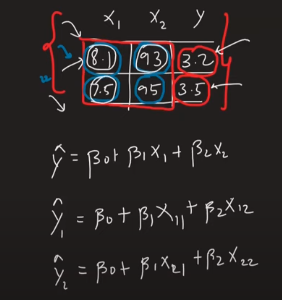 X₁ X₂ Y
8.1 93 3.2
7.5 95 3.5
ŷ = β₀ + β₁X₁ + β₂X₂
ŷ₁ = β₀ + β₁X₁₁ + β₂X₁₂
ŷ₂ = β₀ + β₁X₂₁ + β₂X₂₂